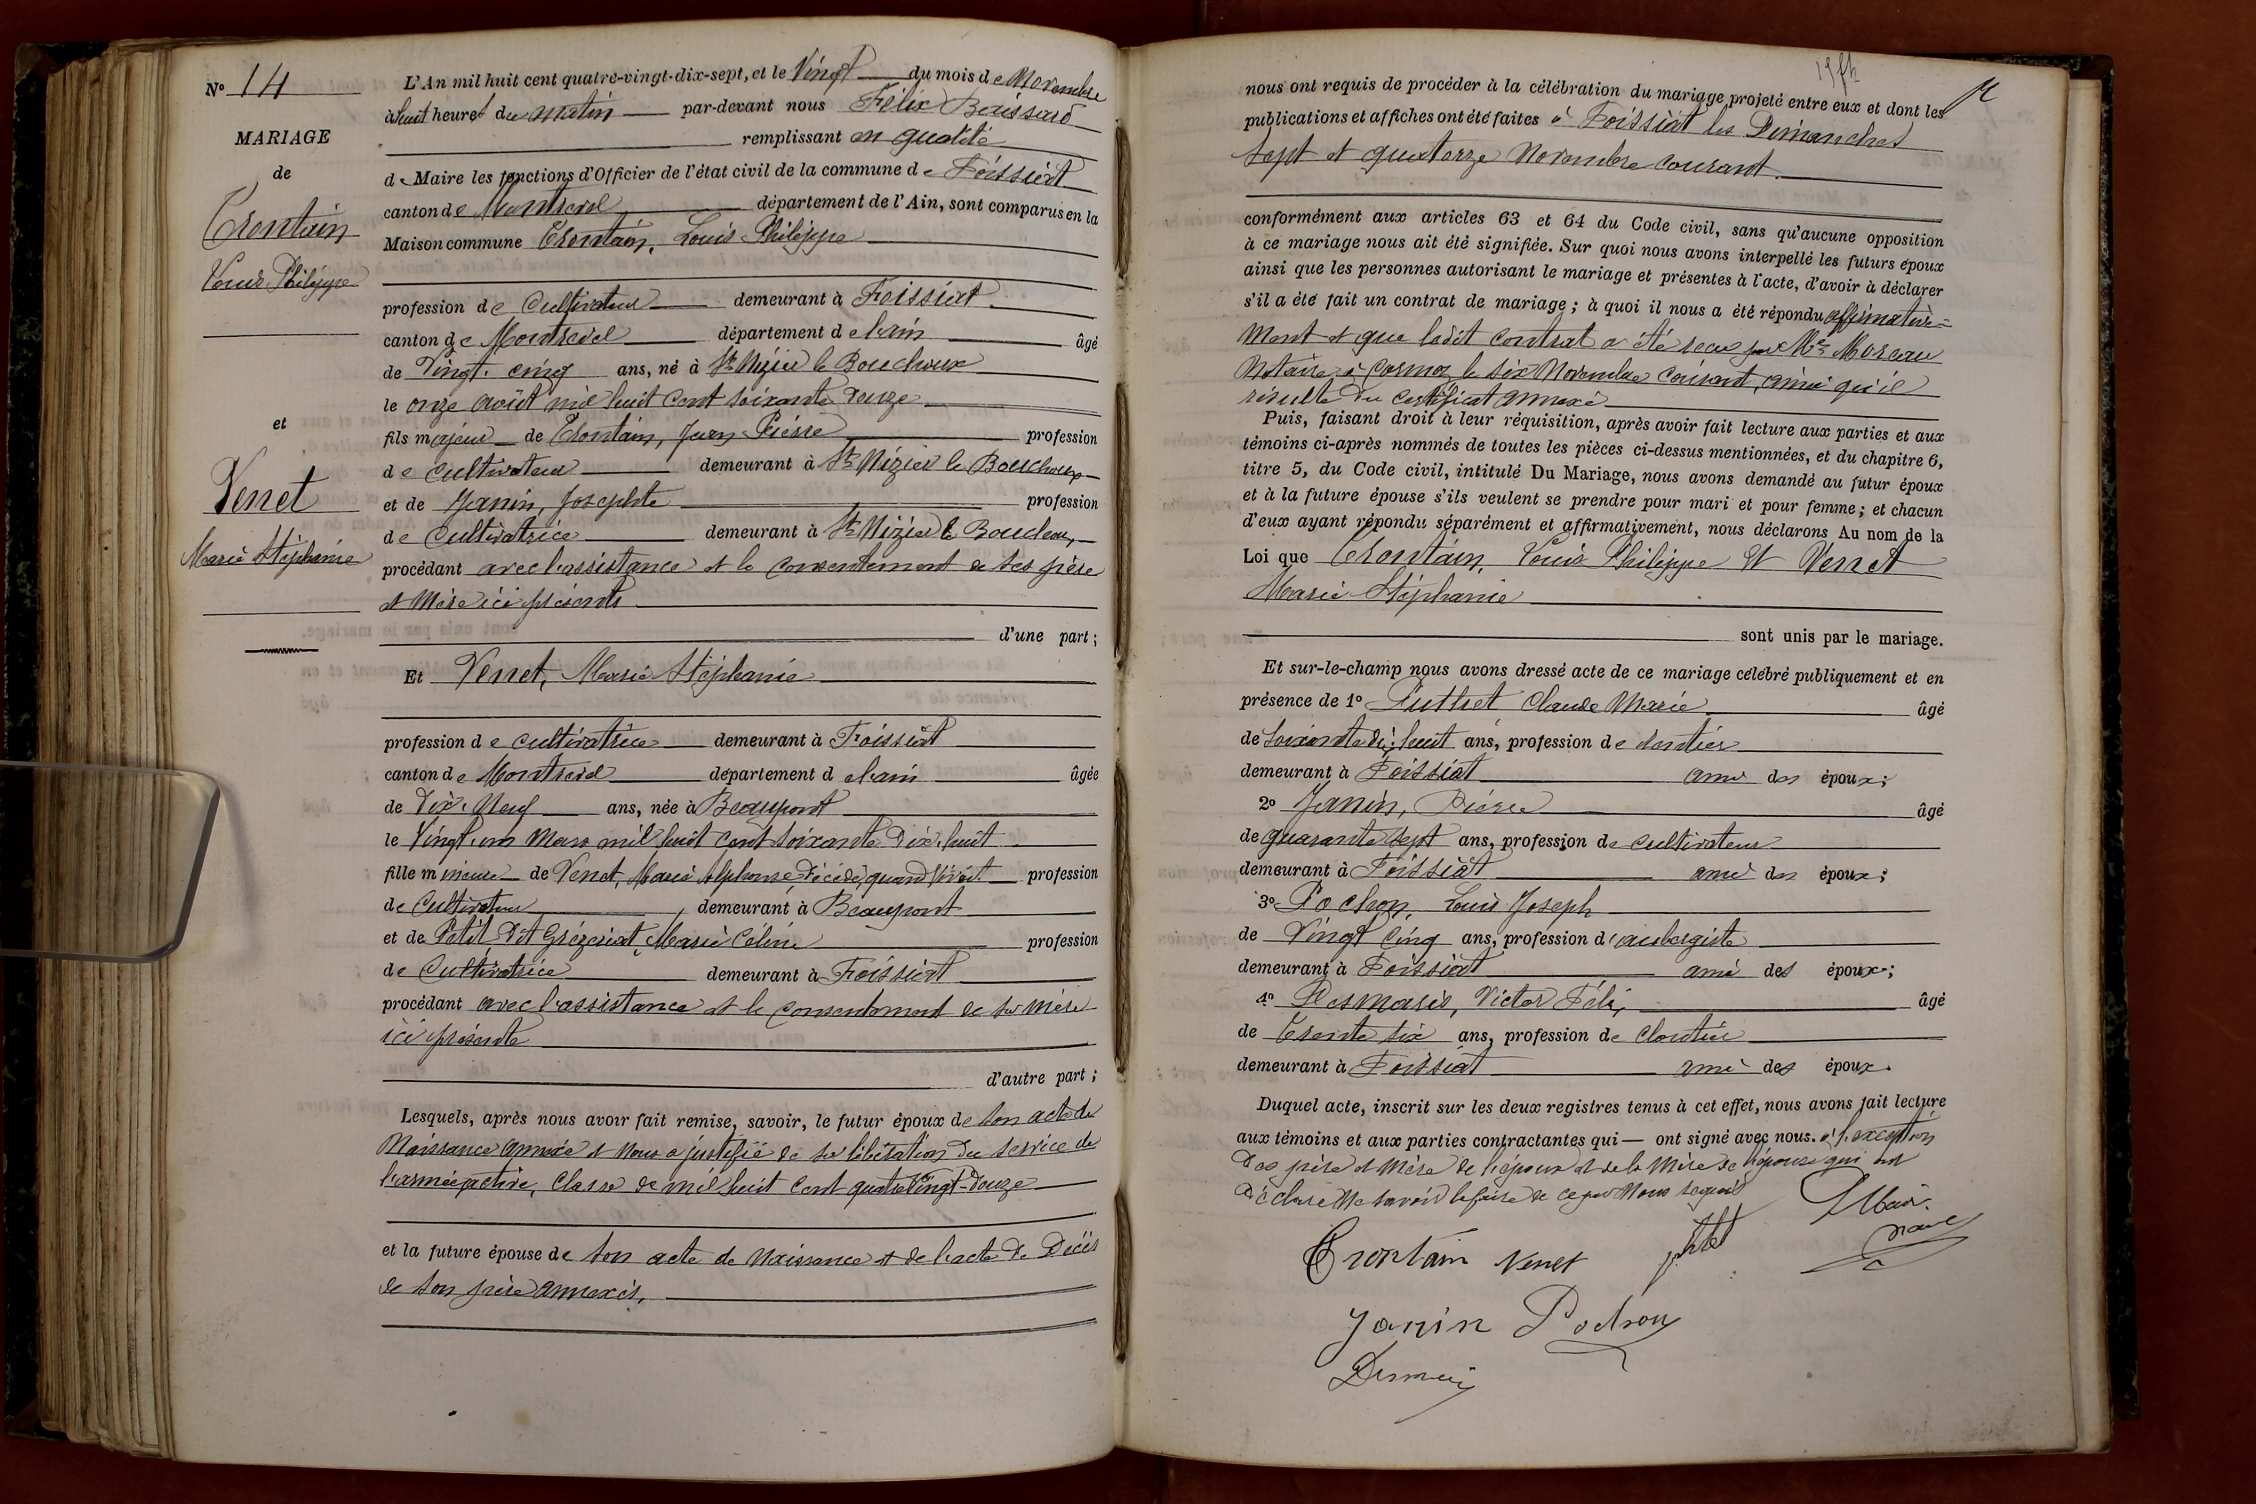 N° 14
MARIAGE
de
Trontain
Louis Philippe
et
Venet
Marie Stéphanie
L'An mil huit cent quatre-vingt-dix-sept, et le Vingt du mois de Novembre
à huit heures du matin par-devant nous Félix Beaissard
remplissant en qualité
de Maire les fonctions d'Officier de l'état civil de la commune de Foissiat
canton de Montrevel département de l'Ain, sont comparus en la
Maison commune Trontain, Louis Philippe
profession de Cultivateur demeurant à Foissiat
canton de Montrevel département de l'ain âgé
de Vingt. cinq ans, né à St Nizier le Bouchoux
le onze août mil huit cent soixante douze
fils majeur de Trontain, Jean Pierre profession
de cultivateur demeurant à St Nizier le Bouchoux
et de Janin, Josephte profession
de Cultivatrice demeurant à St Nizier le Bouchoux,
procédant avec l'assistance et le consentement de ses père
et Mère ici présents
d'une part;
Et Venet, Marie Stéphanie
profession de cultivatrice demeurant à Foissiat
canton de Montrevel département de l'ain âgée
de Dix. Neuf ans, née à Beaupont
le Vingt. un Mars mil huit cent soixante Dix. huit
fille mineure de Venet, Marie Alphonse Décédé, quand Vivait profession
de Cultivateur demeurant à Beaupont
et de Petit Dit Grézeriat, Marie Céline profession
de Cultivatrice demeurant à Foissiat
procédant avec l'assistance et le consentement de sa Mère
ici présente
d'autre part;
Lesquels, après nous avoir fait remise, savoir, le futur époux de son acte de
Naissance annexé et nous a justifié de sa libération du service de
l'armée active, Classe de mil huit cent quatre Vingt-Douze
et la future épouse de son acte de Naissance et de l'acte de Décès
de son père annexés.
19 fh
nous ont requis de procéder à la célébration du mariage projeté entre eux et dont les
publications et affiches ont été faites à Foissiat les Dimanches
Sept et quatorze Novembre courant.
conformément aux articles 63 et 64 du Code civil, sans qu'aucune opposition
à ce mariage nous ait été signifiée. Sur quoi nous avons interpellé les futurs époux
ainsi que les personnes autorisant le mariage et présentes à l'acte, d'avoir à déclarer
s'il a été fait un contrat de mariage; à quoi il nous a été répondu affirmative=
ment et que ledit contrat a été reçu par Me Moreau
Notaire à Cormoz le six Novembre courant, ainsi qu'il
résulte du certificat annexé
Puis, faisant droit à leur réquisition, après avoir fait lecture aux parties et aux
témoins ci-après nommés de toutes les pièces ci-dessus mentionnées, et du chapitre 6,
titre 5, du Code civil, intitulé Du Mariage, nous avons demandé au futur époux
et à la future épouse s'ils veulent se prendre pour mari et pour femme; et chacun
d'eux ayant répondu séparément et affirmativement, nous déclarons Au nom de la
Loi que Trontain, Louis Philippe Et Venet
Marie Stéphanie
sont unis par le mariage.
Et sur-le-champ nous avons dressé acte de ce mariage célébré publiquement et en
présence de 1° Puthet Claude Marie âgé
de soixante dix. huit ans, profession de rentier
demeurant à Foissiat ami des époux;
2° Janin, Pierre âgé
de quarante sept ans, profession de cultivateur
demeurant à Foissiat ami des époux;
3° Pochon, Louis Joseph
de Vingt Cinq ans, profession d'aubergiste
demeurant à Foissiat ami des époux;
4° Desmaris, Victor Félix, âgé
de Trente six ans, profession de Cloutier
demeurant à Foissiat ami des époux.
Duquel acte, inscrit sur les deux registres tenus à cet effet, nous avons fait lecture
aux témoins et aux parties contractantes qui — ont signé avec nous. à l'exception
Des père et Mère de l'époux et de la Mère de l'épouse qui ont
Déclaré Ne savoir le faire de ce par Nous requis
Trontain Venet puthet
Janin Pochon